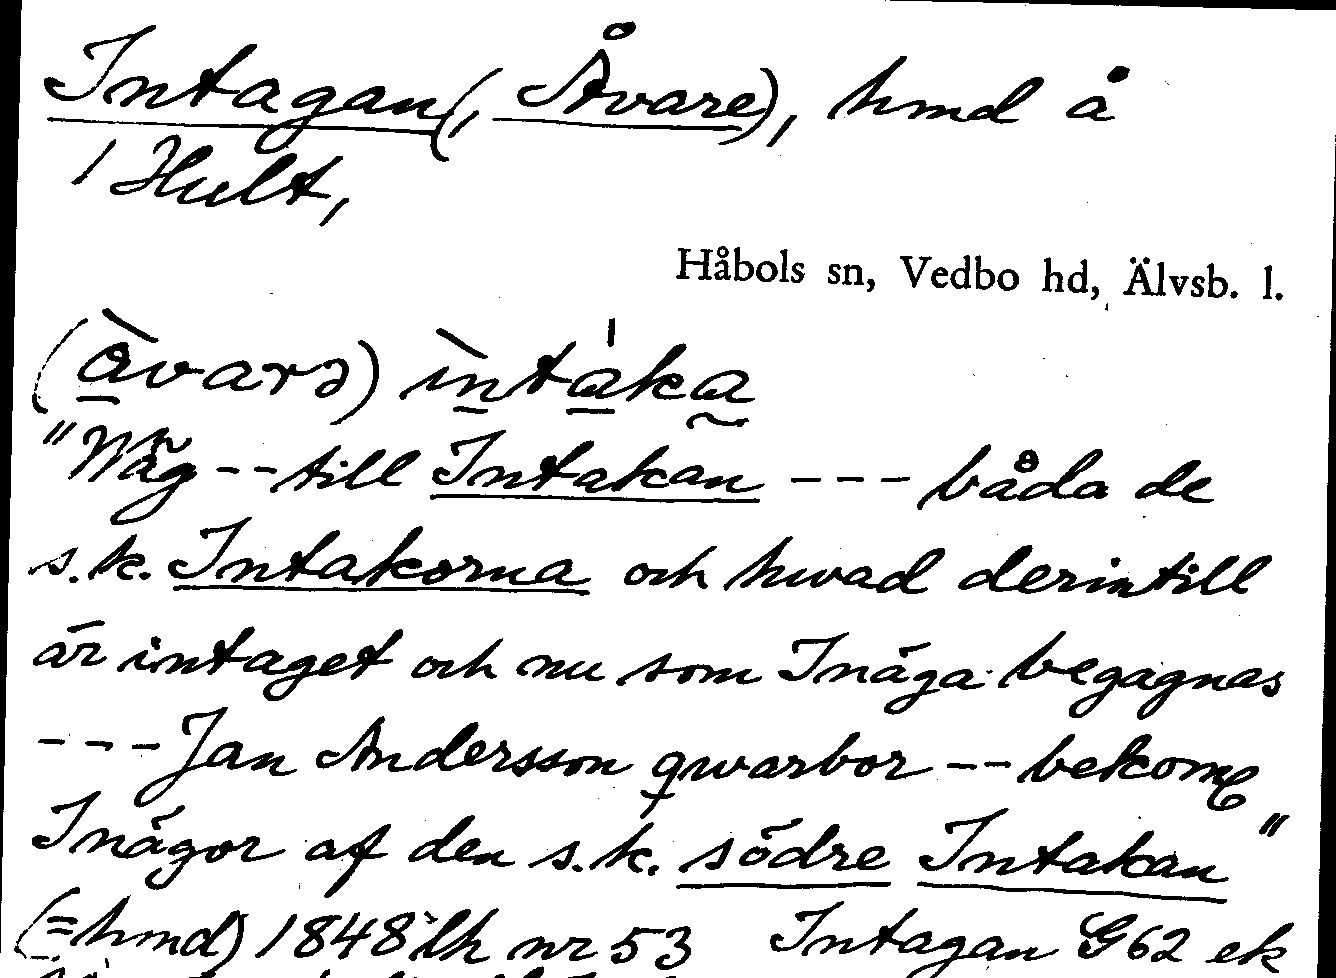 Intagan(, Åvare), hmd å
1 Hult,
Håbols sn, Vedbo hd, Älvsb. l.
(àvarə) ìntáka
"Wäg -- till Intakan --- båda de
s.k. Intakorna och hwad derintill
är intaget och nu som Inäga begagnas
--- Jan Andersson qwarbor -- bekom̄e
Inägor af den s.k. södre Intakan"
(=hmd) 1848 lh nr 53 Intagan G62 ek